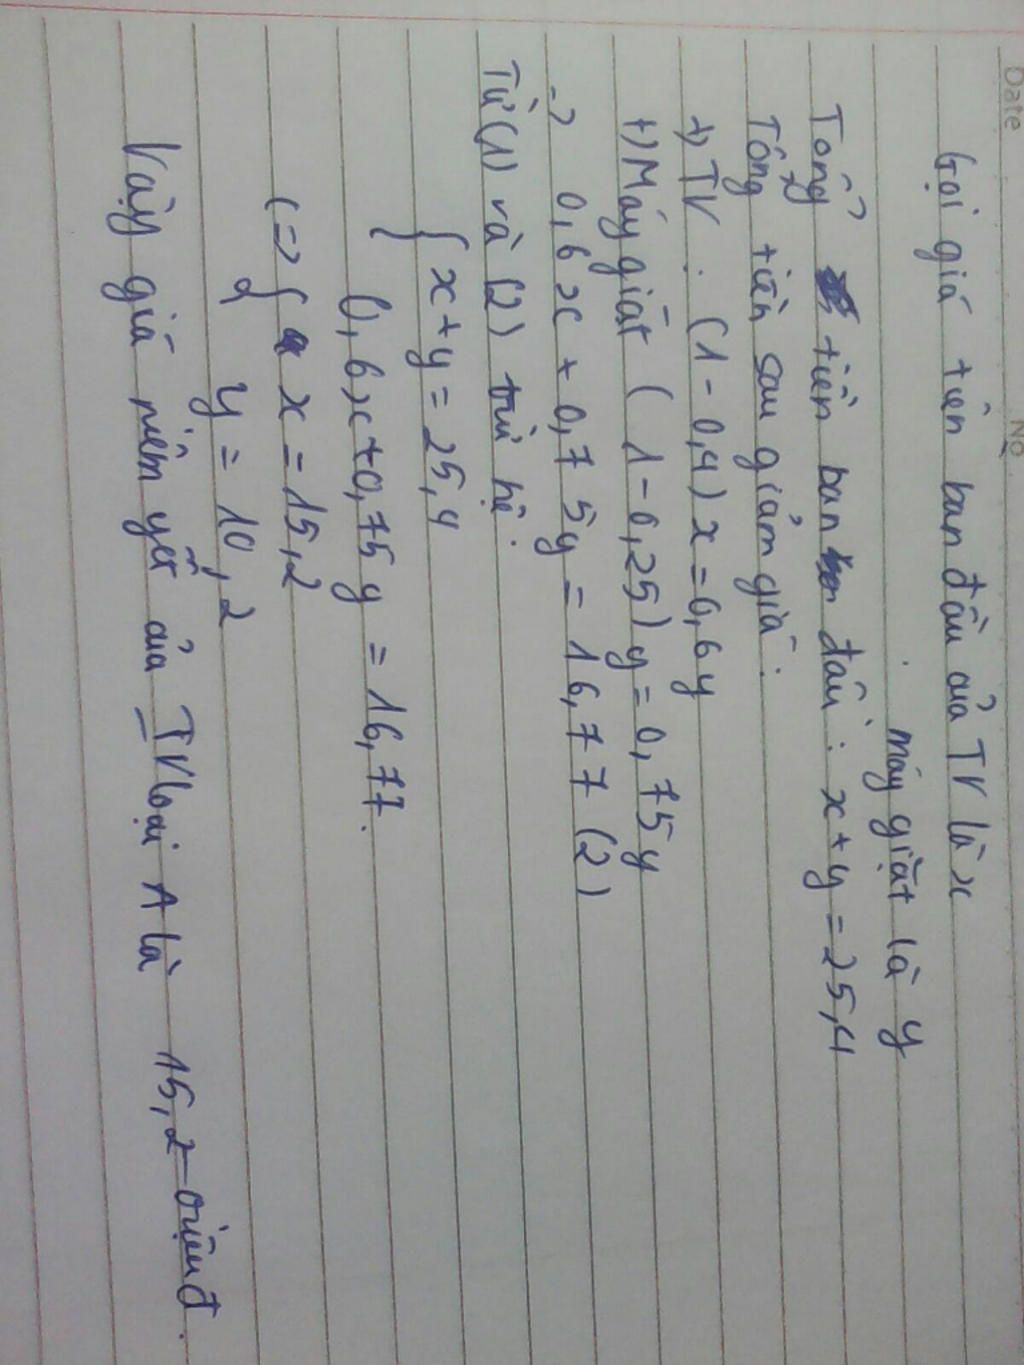 Date
No
Gọi giá tiền ban đầu của TV là x
máy giặt là y
Tổng tiền ban đầu : x + y = 25,4
Tổng tiền sau giảm giá :
+) TV : (1 - 0,4) x = 0,6 y
+) Máy giặt ( 1 - 0,25) y = 0,75 y
-> 0,6 x + 0,75 y = 16,77 (2)
Từ (1) và (2) hệ.
{ x + y = 25,4
0,6 x + 0,75 y = 16,77.
(=> { x = 15,2
y = 10,2
Vậy giá niêm yết của TV loại A là 15,2 triệu đ.